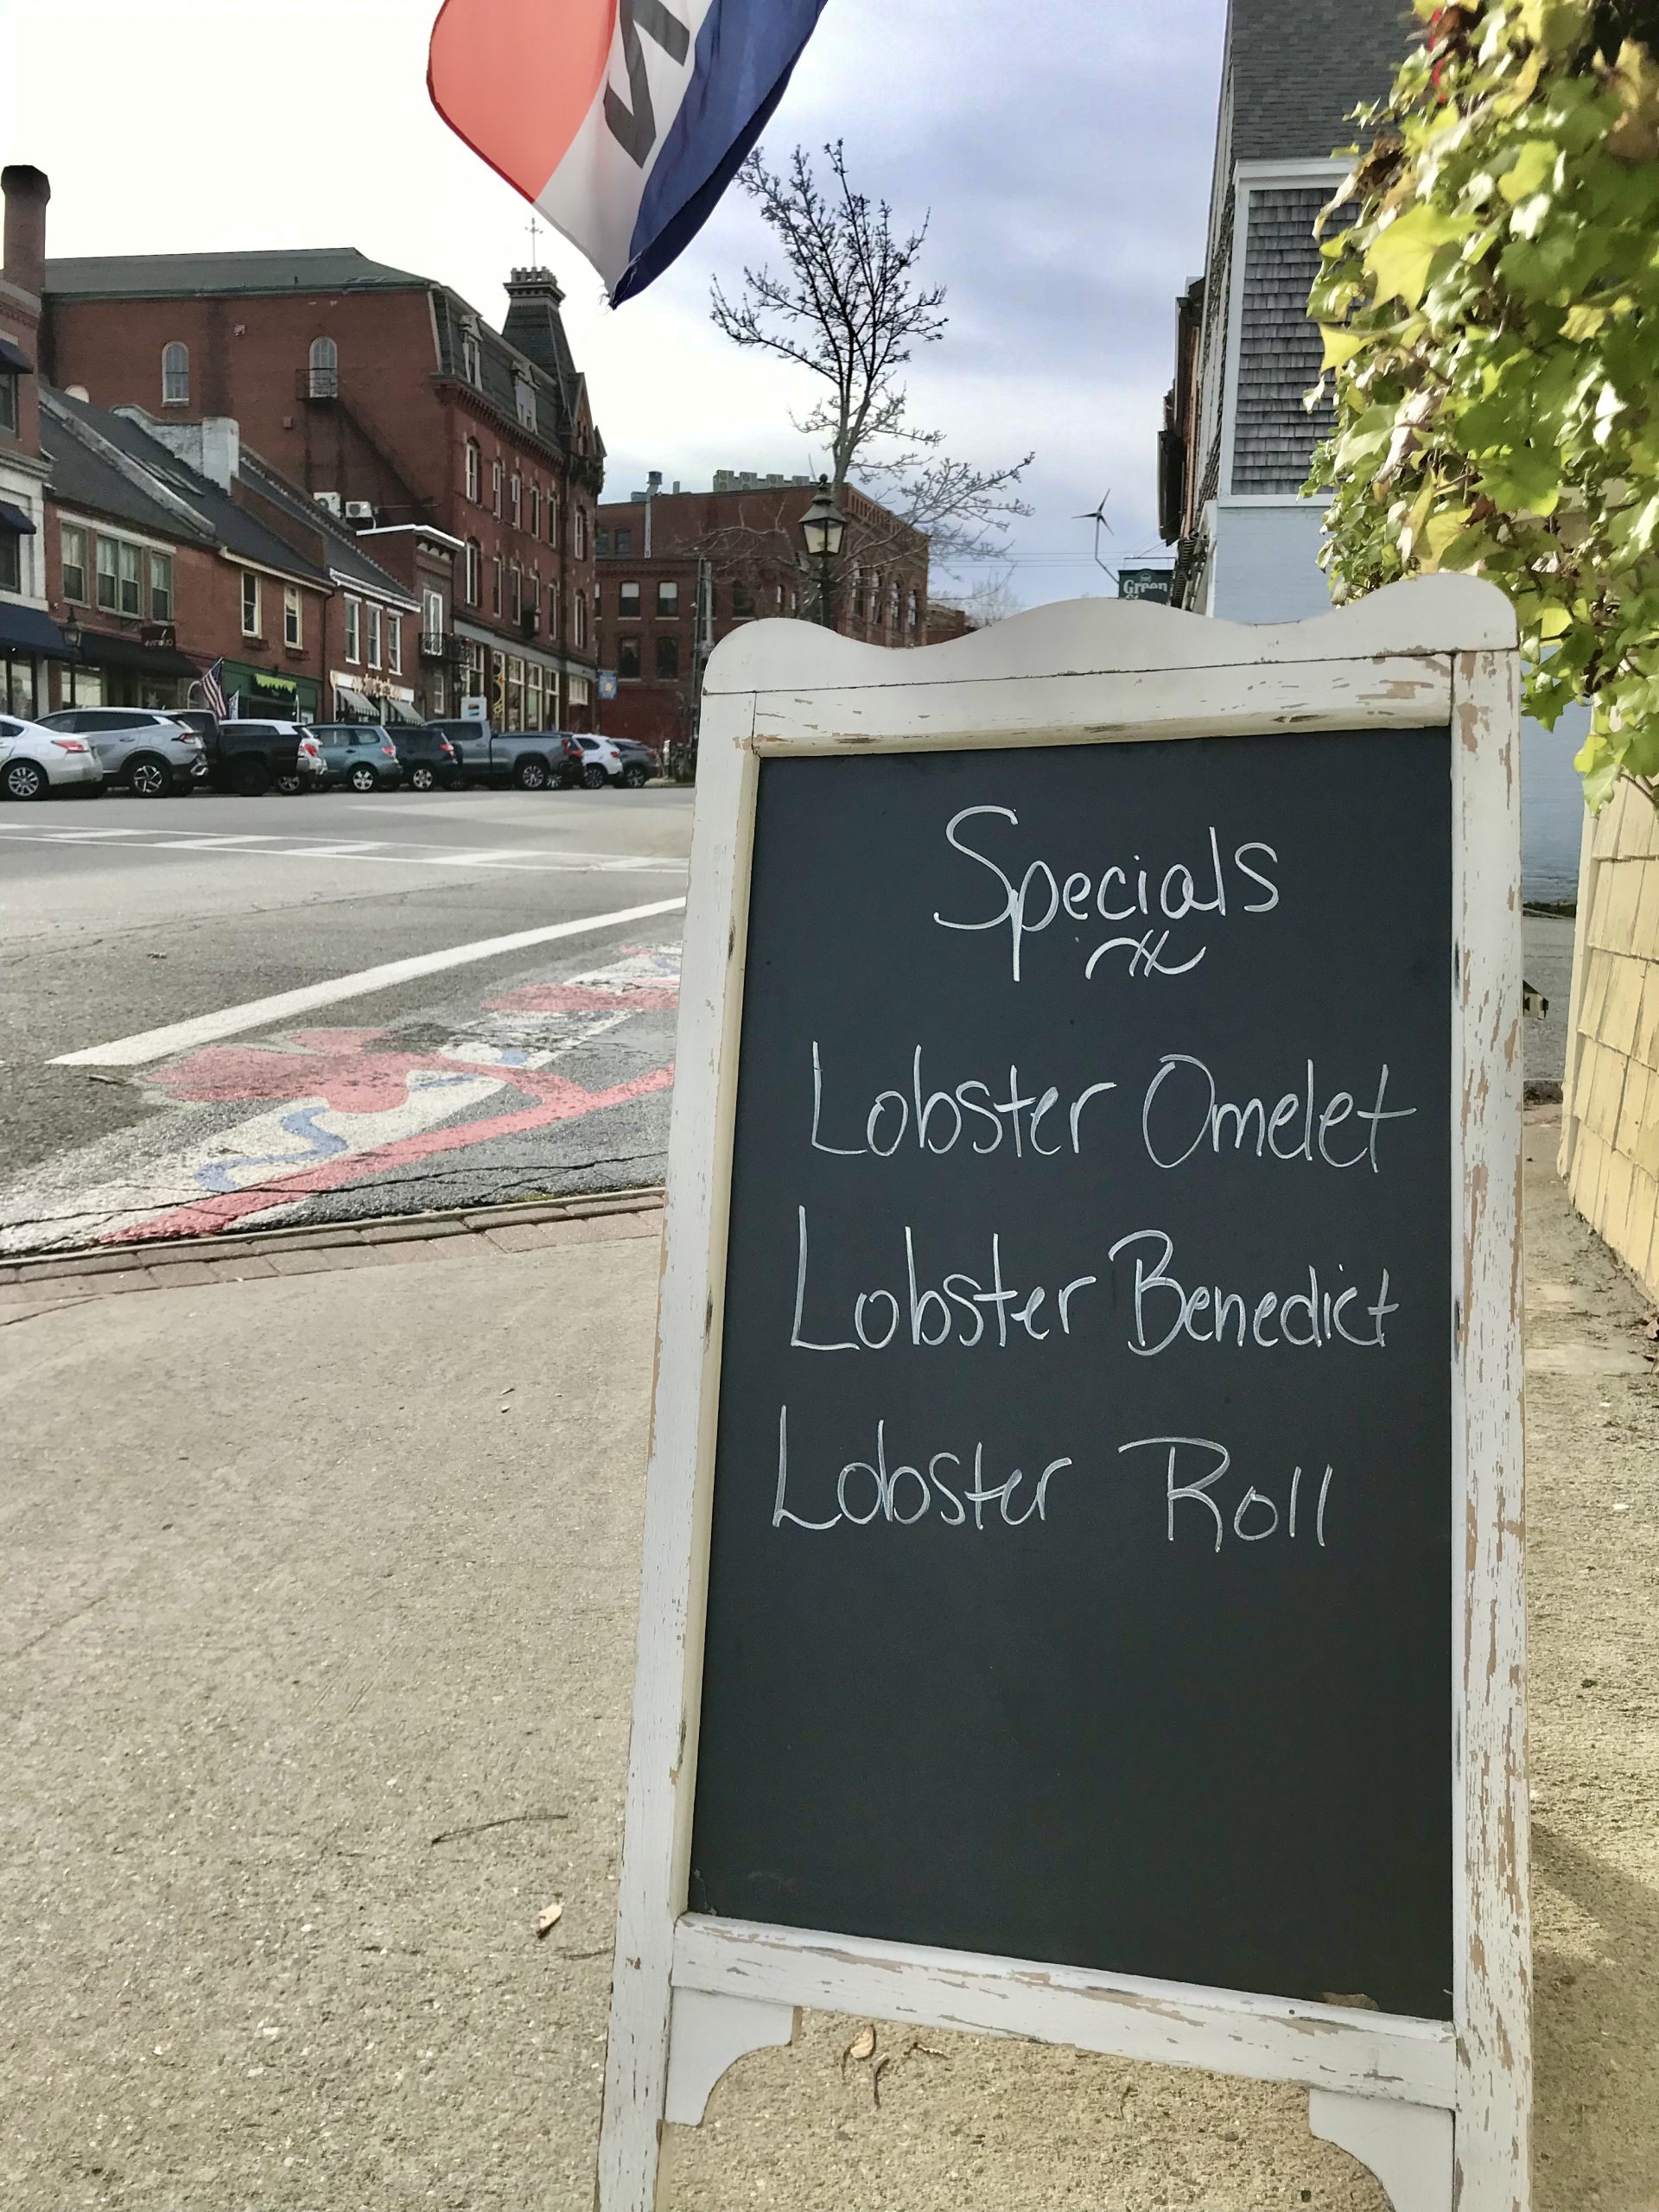 N
Green
Specials
Lobster Omelet
Lobster Benedict
Lobster Roll